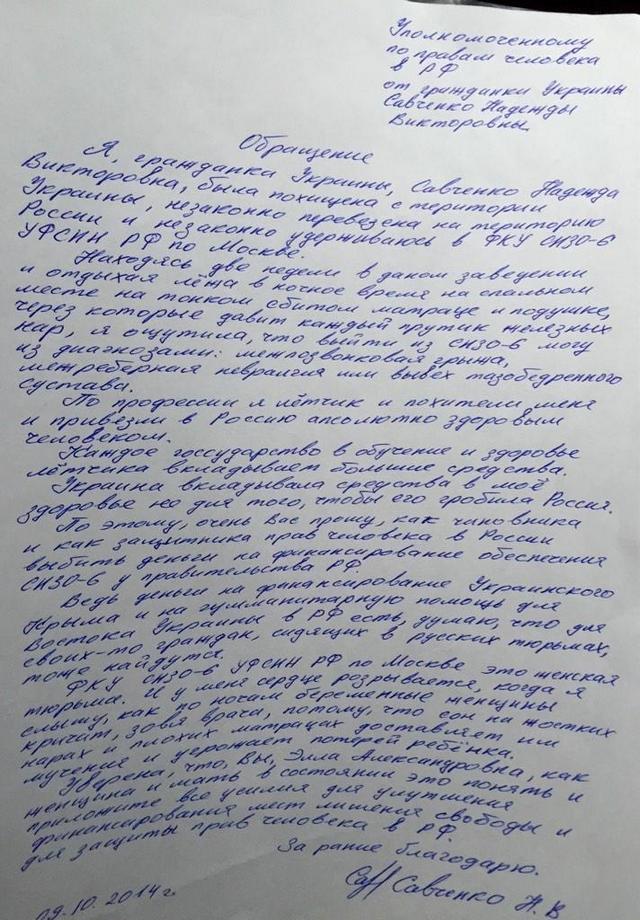 Уполномоченному
по правам человека
в РФ
от гражданки Украины
Савченко Надежды
Викторовны.
Обращение
Я, гражданка Украины, Савченко Надежда
Викторовна, была похищена с територии
Украины, незаконно перевезена на територию
России и незаконно удерживаюсь в ФКУ СИЗО-6
УФСИН РФ по Москве.
Находясь две недели в даном заведении
и отдыхая лёжа в ночное время на спальном
месте на тонком сбитом матраце и подушке,
через которые давит каждый прутик железных
нар, я ощутила, что выйти из СИЗО-6 могу
из диагнозами: межпозвонковая грыжа,
межреберная невралгия или вывех тазобедренного
сустава.
По профессии я лётчик и похители меня
и привезли в Россию апсолютно здоровым
человеком.
Каждое госсударство в обучение и здоровье
лётчика вкладывает большие средства.
Украина вкладывала средства в моё
здоровье не для того, чтобы его гробила Россия.
По этому, очень Вас прошу, как чиновника
и как защитника прав человека в России
выбить деньги на финансирование обеспечения
СИЗО-6 у правительства РФ.
Ведь деньги на финансирование Украинского
Крыма и на гумманитарную помощь для
Востока Украины в РФ есть, думаю, что для
своих-то граждан, сидящих в русских тюрьмах,
тоже найдутся.
ФКУ СИЗО-6 УФСИН РФ по Москве это женская
тюрьма. И у меня сердце розрывается, когда я
слышу, как по ночам беременные женщины
кричат, зовя врача, потому, что сон на жостких
нарах и плохих матрацах доставляет им
мучение и угрожает потерей ребёнка.
Уверена, что, Вы, Элла Александровна, как
женщина и мать в состоянии это понять и
приложите все усилия для улутшения
финансирования мест лишения свободы и
для защиты прав человека в РФ.
За рание благодарю.
Савченко Н. В
09.10.2014г.